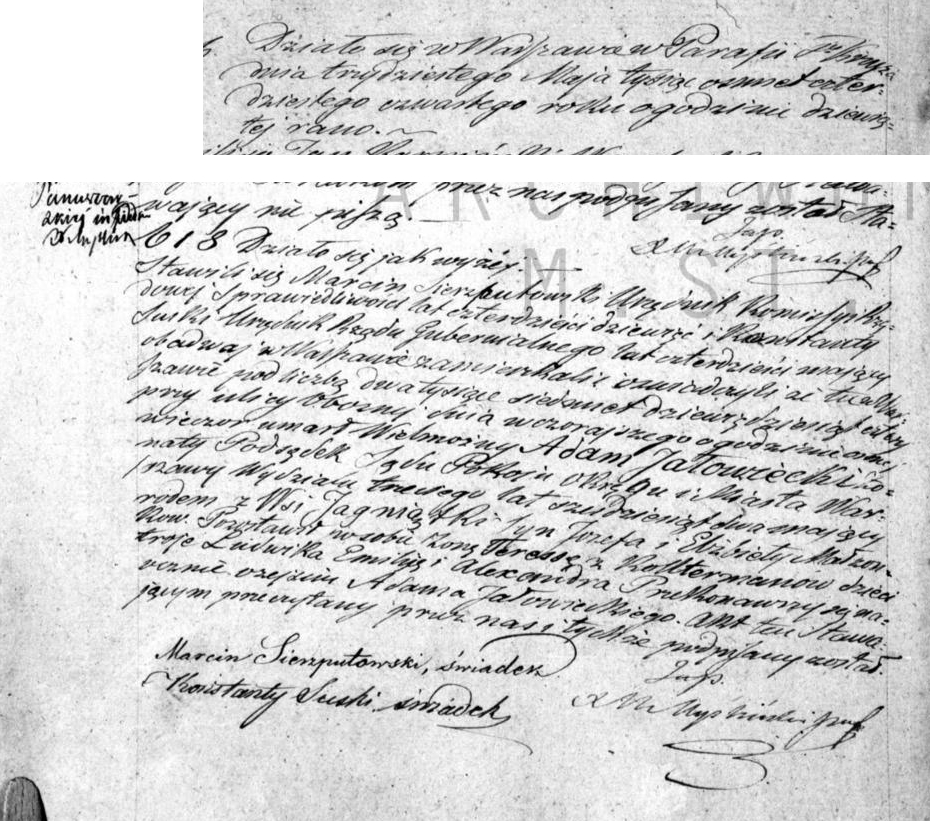 Działo się w Warszawie w Parafii Sgo Krzyża
dnia trzydziestego Maja tysiąc ośmset czter-
dziestego czwartego roku o godzinie dziewią-
tej rano.
przez nas podpisany został Sta-
wający nie piszą
618 Działo się jak wyżej.
Stawili się Marcin Sierzputowski Urzędnik Kommissyi Rzą-
dowej Sprawiedliwości lat czterdzieści dziewięć i Konstanty
Suski Urzędnik Rządu Gubernialnego lat czterdzieści mający
obadwaj w Warszawie zamieszkali i oświadczyli że tu w War-
szawie pod liczbą dwa tysiące siedmset dziewięćdziesiąt cztery
przy ulicy Oboznej dnia wczorajszego o godzinie ósmej
wieczor umarł Wielmożny Adam Jałowiecki Żo-
naty Podsędek Sądu Pokoju Okręgu i Miasta War-
szawy Wydziału trzeciego lat sześdziesiąt dwa mający
rodem z Wsi Jagniątki Syn Jozefa i Elżbiety Małżon-
kow. Pozostawił po sobie żonę Teressę z Koltermanow dzieci
troje Ludwika Emiliją i Alexandra Przekonawszy się na-
ocznie o zejściu Adama Jałowieckiego. Akt ten Stawa-
jącym przeczytany przez nas i tychże podpisany został.
Marcin Sierzputowski, świadek
Konstanty Suski, świadek
ARCHIWUM
M. ST.